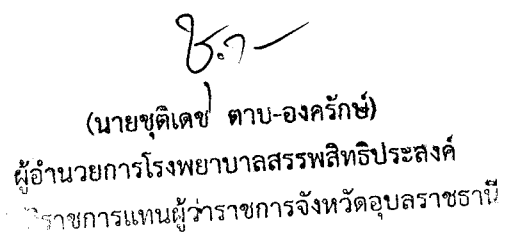 (นายชุติเดช ตาบ-องครักษ์)
ผู้อำนวยการโรงพยาบาลสรรพสิทธิประสงค์
ราชการแทนผู้ว่าราชการจังหวัดอุบลราชธานี